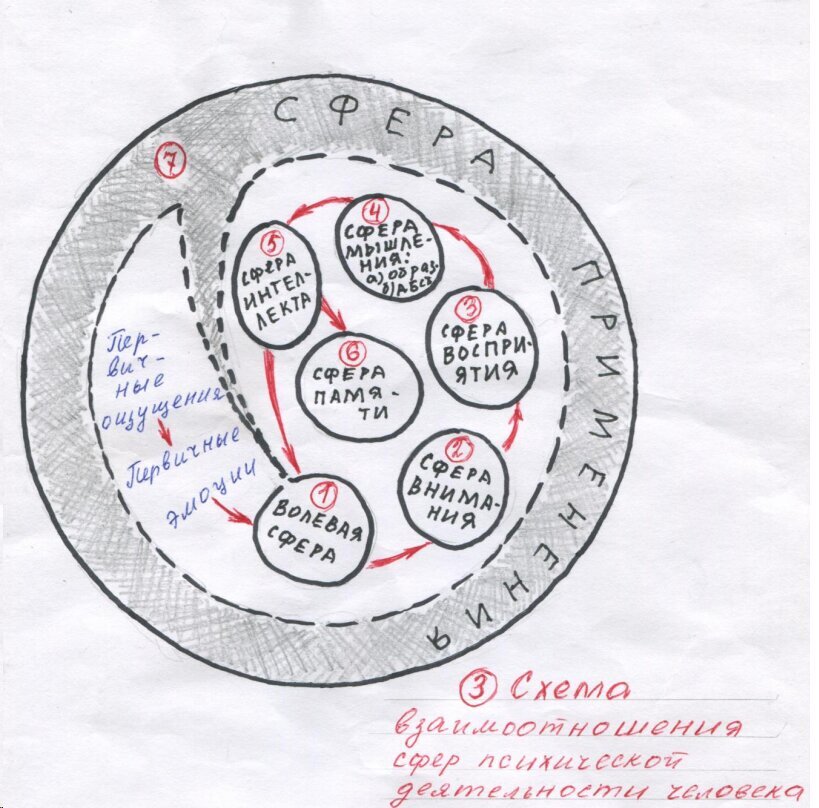 СФЕРА
ПРИМЕНЕНИЯ
7
4
СФЕРА
МЫШЛЕ-
НИЯ:
а) ОБРАЗ
б) АБСЬ
5
СФЕРА
ИНТЕЛ-
ЛЕКТА
3
СФЕРА
ВОСПРИ-
ЯТИЯ
6
СФЕРА
ПАМЯ-
ТИ
2
СФЕРА
ВНИМА-
НИЯ
1
ВОЛЕВАЯ
СФЕРА
Пер-
вич-
ные
ощущения
Первичные
эмоции
3 Схема
взаимоотношения
сфер психической
деятельности человека